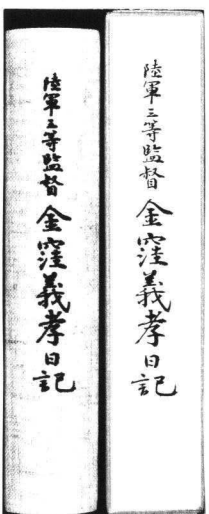 陸軍三等監督 金窪義孝日記
陸軍三等監督 金窪義孝日記